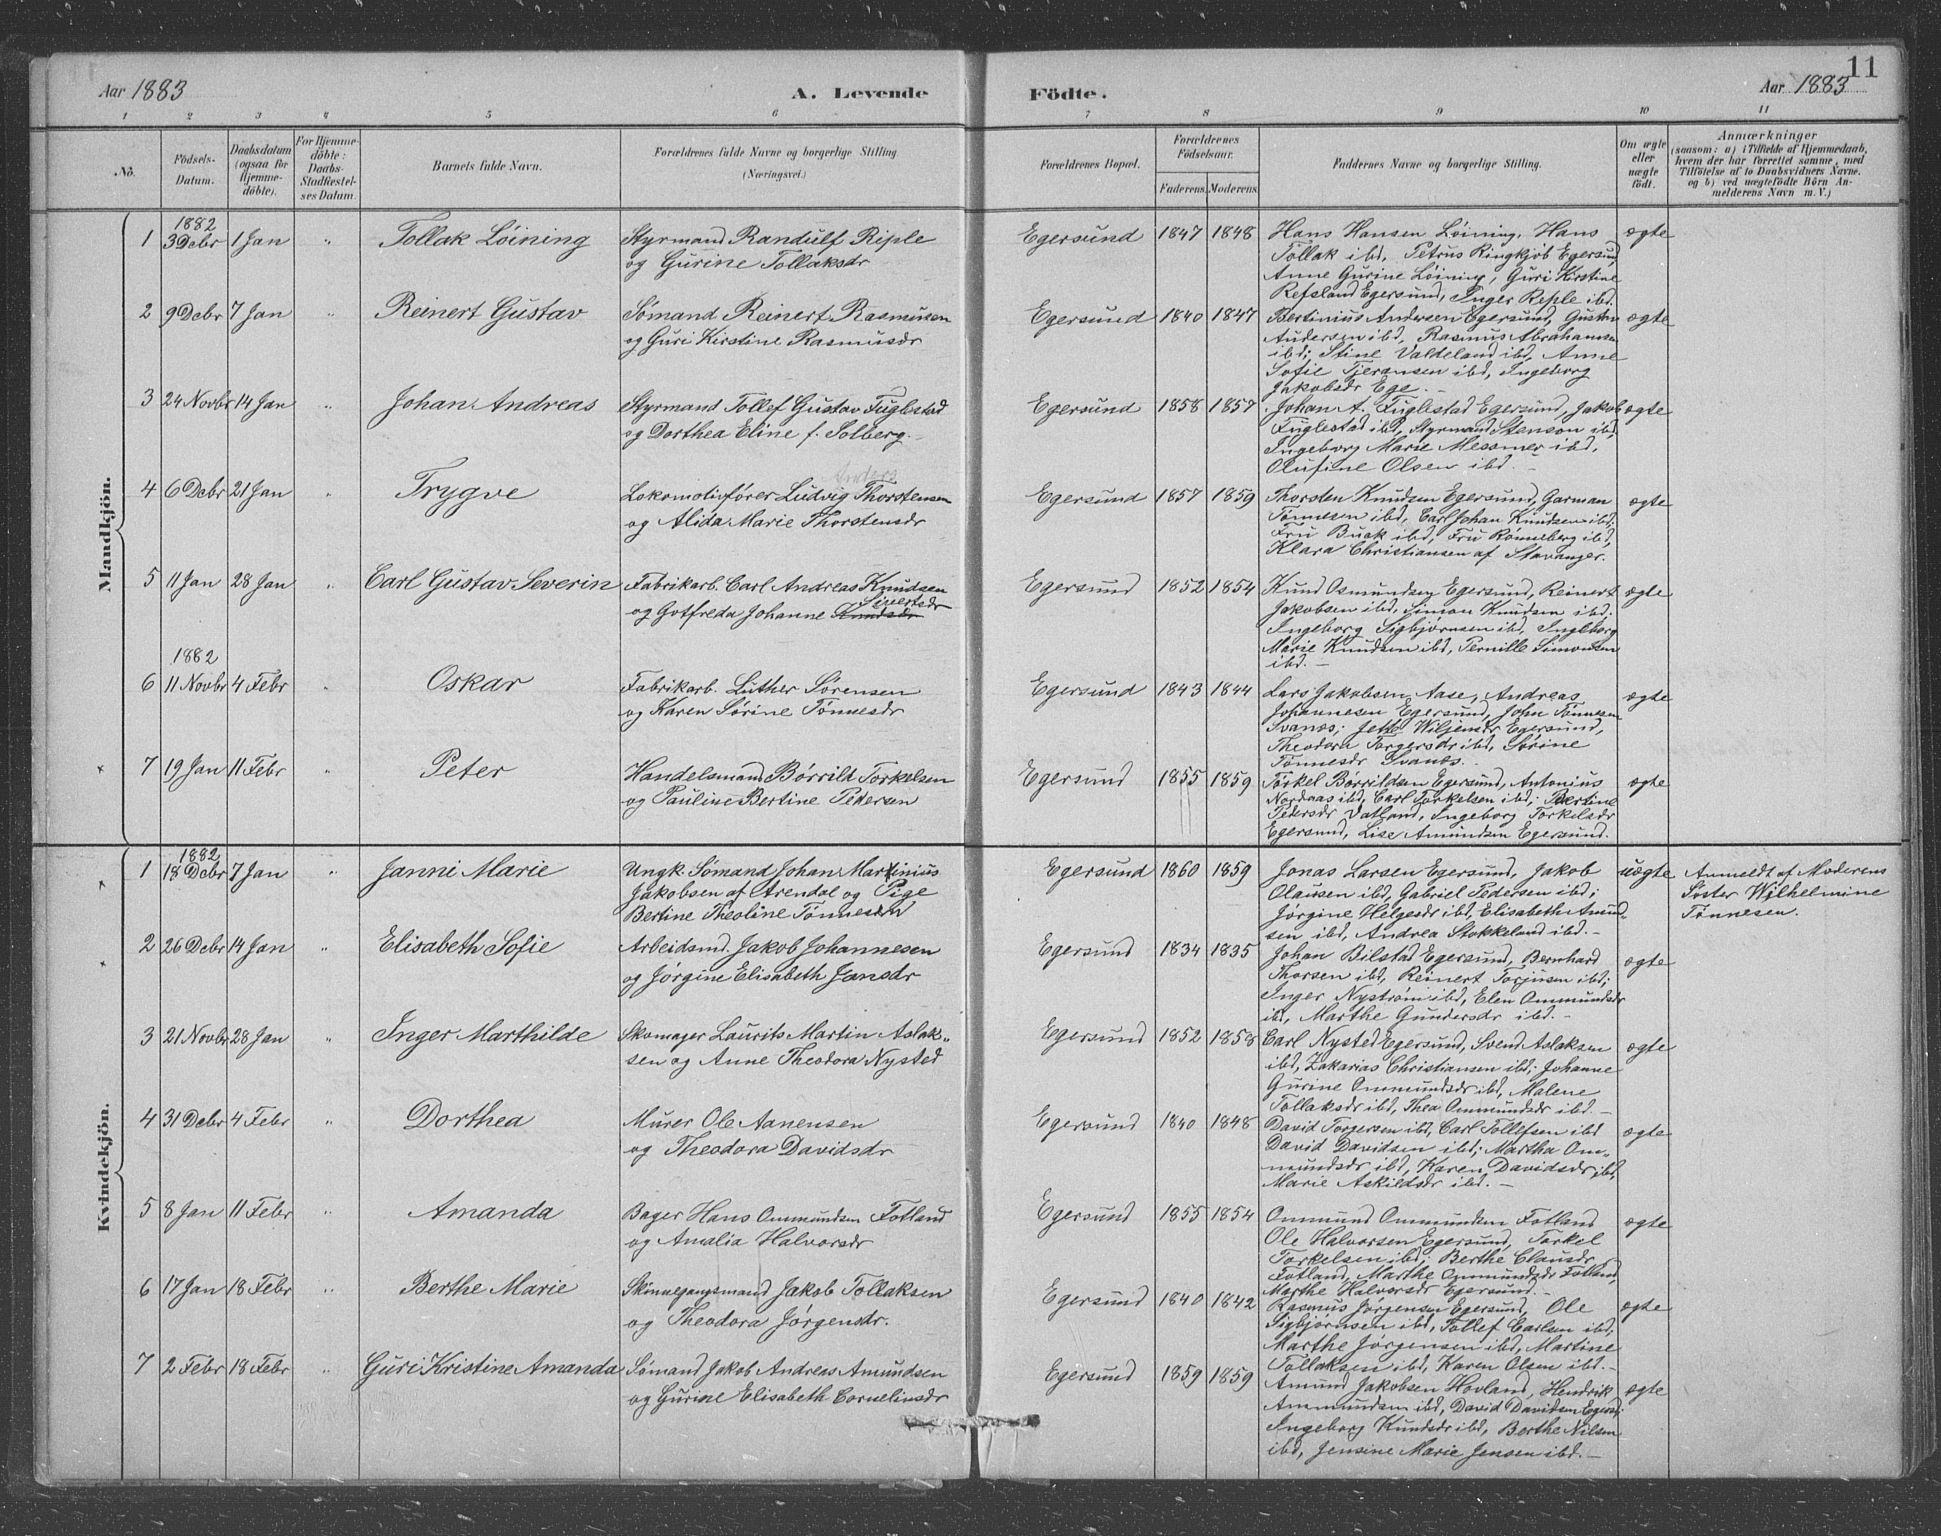 11
Aar 1883
A. Levende
Födte.
Aar 1883
1 2 3 4 5 6 7 8 9 10 11
No.
Födsels-
Datum.
Daabsdatum
(ogsaa for
Hjemme-
döbte).
For Hjemme-
döbte:
Daabs-
Stadfæstel-
ses Datum.
Barnets fulde Navn.
Forældrenes fulde Navne og borgerlige Stilling
(Næringsvei.)
Forældrenes Bopæl.
Forældrenes
Födselsaar.
Faderens. Moderens.
Faddernes Navne og borgerlige Stilling.
Om ægte
eller
uægte
födt.
Anmærkninger
(saasom: a) i Tilfælde af Hjemmedaab,
hvem der har forrettet samme, med
Tilföielse af to Daabsvidners Navne.
og b) ved uægtefödte Börn An-
melderens Navn m. V.)
Mandkjön.
1882
1 3 Debr 1 Jan " Tollak Löining
Styrmand Randulf Riple
og Gurine Tollaksdr
Egersund 1847 1848
Hans Hansen Löining, Hans
Tollak ibd, Petrus Ringkjöb Egersund,
Anne Gurine Löining, Guri Kirstine
Refsland Egersund, Inger Riple ibd.
ægte
2 9 Debr 7 Jan " Reinert Gustav
Sømand Reinert Rasmusen
og Guri Kirstine Rasmusdr
Egersund 1840 1847
Bertinius Andersen Egersund, Gustav
Andersen ibd, Rasmus Abrahamsen
ibd; Stine Valdeland ibd, Anne
Sofie Tjeransen ibd, Ingeborg
Jakobsdr Ege. –
ægte
3 24 Novbr 14 Jan " Johan Andreas
Styrmand Tollef Gustav Fuglestad
og Dorthea Eline f. Solberg.
Egersund 1858 1857
Johan A. Fuglestad Egersund, Jakob
Fuglestad ibd, Styrmand Stenson ibd,
Ingeborg Marie Messmer ibd,
Olufine Olsen ibd. –
ægte
4 6 Debr 21 Jan " Trygve
Anders
Lokomotivfører Ludvig Thorstensen
og Alida Marie Thorstensdr
Egersund 1857 1859
Thorsten Knudsen Egersund, Garman
Tönnesen ibd, Carl Johan Knudsen ibd;
Fru Buck ibd, Fru Rönneberg ibd,
Klara Christiansen af Stavanger.
ægte
5 11 Jan 28 Jan " Carl Gustav Severin
Fabrikarb. Carl Andreas Knudsen
Sivertsdr
og Gotfreda Johanne Knudsdr
Egersund 1852 1854
Knud Osmundsen Egersund, Reinert
Jakobsen ibd, Simon Knudsen ibd.
Ingeborg Sigbjørnsen ibd, Ingeborg
Marie Knudsen ibd, Pernille Simonsen
ibd. –
ægte
1882
6 11 Novbr 4 Febr " Oskar
Fabrikarb. Luther Sørensen
og Karen Sørine Tönnesdr
Egersund 1843 1844
Lars Jakobsen Aase, Andreas
Johannesen Egersund, John Tönnesen
Svanæs; Jette Wiljemsdr Egersund,
Theodora Torgersdr ibd, Sørine
Tönnesdr Svanæs.
ægte
7 19 Jan 11 Febr " Peter
Handelsmand Börrild Torkelsen
og Pauline Bertine Pedersen
Egersund 1855 1859
Torkel Börrildsen Egersund, Antonius
Nordaas ibd, Carl Torkelsen ibd; Bertine
Pedersdr Vatland, Ingeborg Torkelsdr
Egersund, Lise Amundsen Egersund.
ægte
Kvindekjön.
1882
1 18 Debr 7 Jan " Janni Marie
Ungk. Sømand Johan Martinius
Jakobsen af Arendal og Pige
Bertine Theoline Tönnesen
Egersund 1860 1859
Jonas Larsen Egersund, Jakob
Olausen ibd, Gabriel Pedersen ibd;
Jörgine Helgesdr ibd, Elisabeth Amund-
sen ibd, Andrea Stokkeland ibd. –
uægte
Anmeldt af Moderens
Söster Wilhelmine
Tönnesen.
2 26 Debr 14 Jan " Elisabeth Sofie
Arbeidsmd. Jakob Johannesen
og Jörgine Elisabeth Jansdr
Egersund 1834 1835
Johan Bilstad Egersund, Bernhard
Thorsen ibd, Reinert Torjusen ibd;
Inger Nyström ibd, Elen Ommundsdr
ibd, Marthe Gundersdr ibd. –
ægte
3 21 Novbr 28 Jan " Inger Marthilde
Skomager Laurits Martin Aslak-
sen og Anne Theodora Nysted
Egersund 1852 1858
Carl Nysted Egersund, Svend Aslaksen
ibd, Zakarias Christiansen ibd; Johanne
Gurine Ommundsdr ibd, Malene
Tollaksdr ibd, Thea Ommundsdr ibd. –
ægte
4 31 Debr 4 Febr " Dorthea
Murer Ole Aanensen
og Theodora Davidsdr
Egersund 1840 1848
David Torgersen ibd, Carl Tollefsen ibd
David Davidsen ibd; Martha Om-
mundsdr ibd, Karen Davidsdr ibd,
Marie Askildsdr ibd. –
ægte
5 8 Jan 11 Febr " Amanda
Bager Hans Ommundsen Fotland
og Amalia Halvorsdr
Egersund 1855 1854
Ommund Ommundsen Fotland
Ole Halvorsen Egersund, Torkel
Torkelsen ibd; Berthe Clausdr
Fotland, Marthe Ommundsdr Fotland,
Marthe Halvorsdr Egersund. –
ægte
6 17 Jan 18 Febr " Berthe Marie
Skinnegangsmand Jakob Tollaksen
og Theodora Jørgensdr.
Egersund 1840 1842
Rasmus Jørgensen Egersund, Ole
Sigbjørnsen ibd, Tollef Carlsen ibd,
Marthe Jørgensen ibd, Martine
Tollaksen ibd, Karen Olsen ibd. –
ægte
7 2 Febr 18 Febr " Guri Kristine Amanda
Sømand Jakob Andreas Amundsen
og Gurine Elisabeth Corneliusdr
Egersund 1859 1859
Amund Jakobsen Hovland, Hendrik
Ammundsen ibd, David Davidsen Egersd;
Ingeborg Knudsdr ibd, Berthe Nilsen
ibd, Jensine Marie Jensen ibd. –
ægte